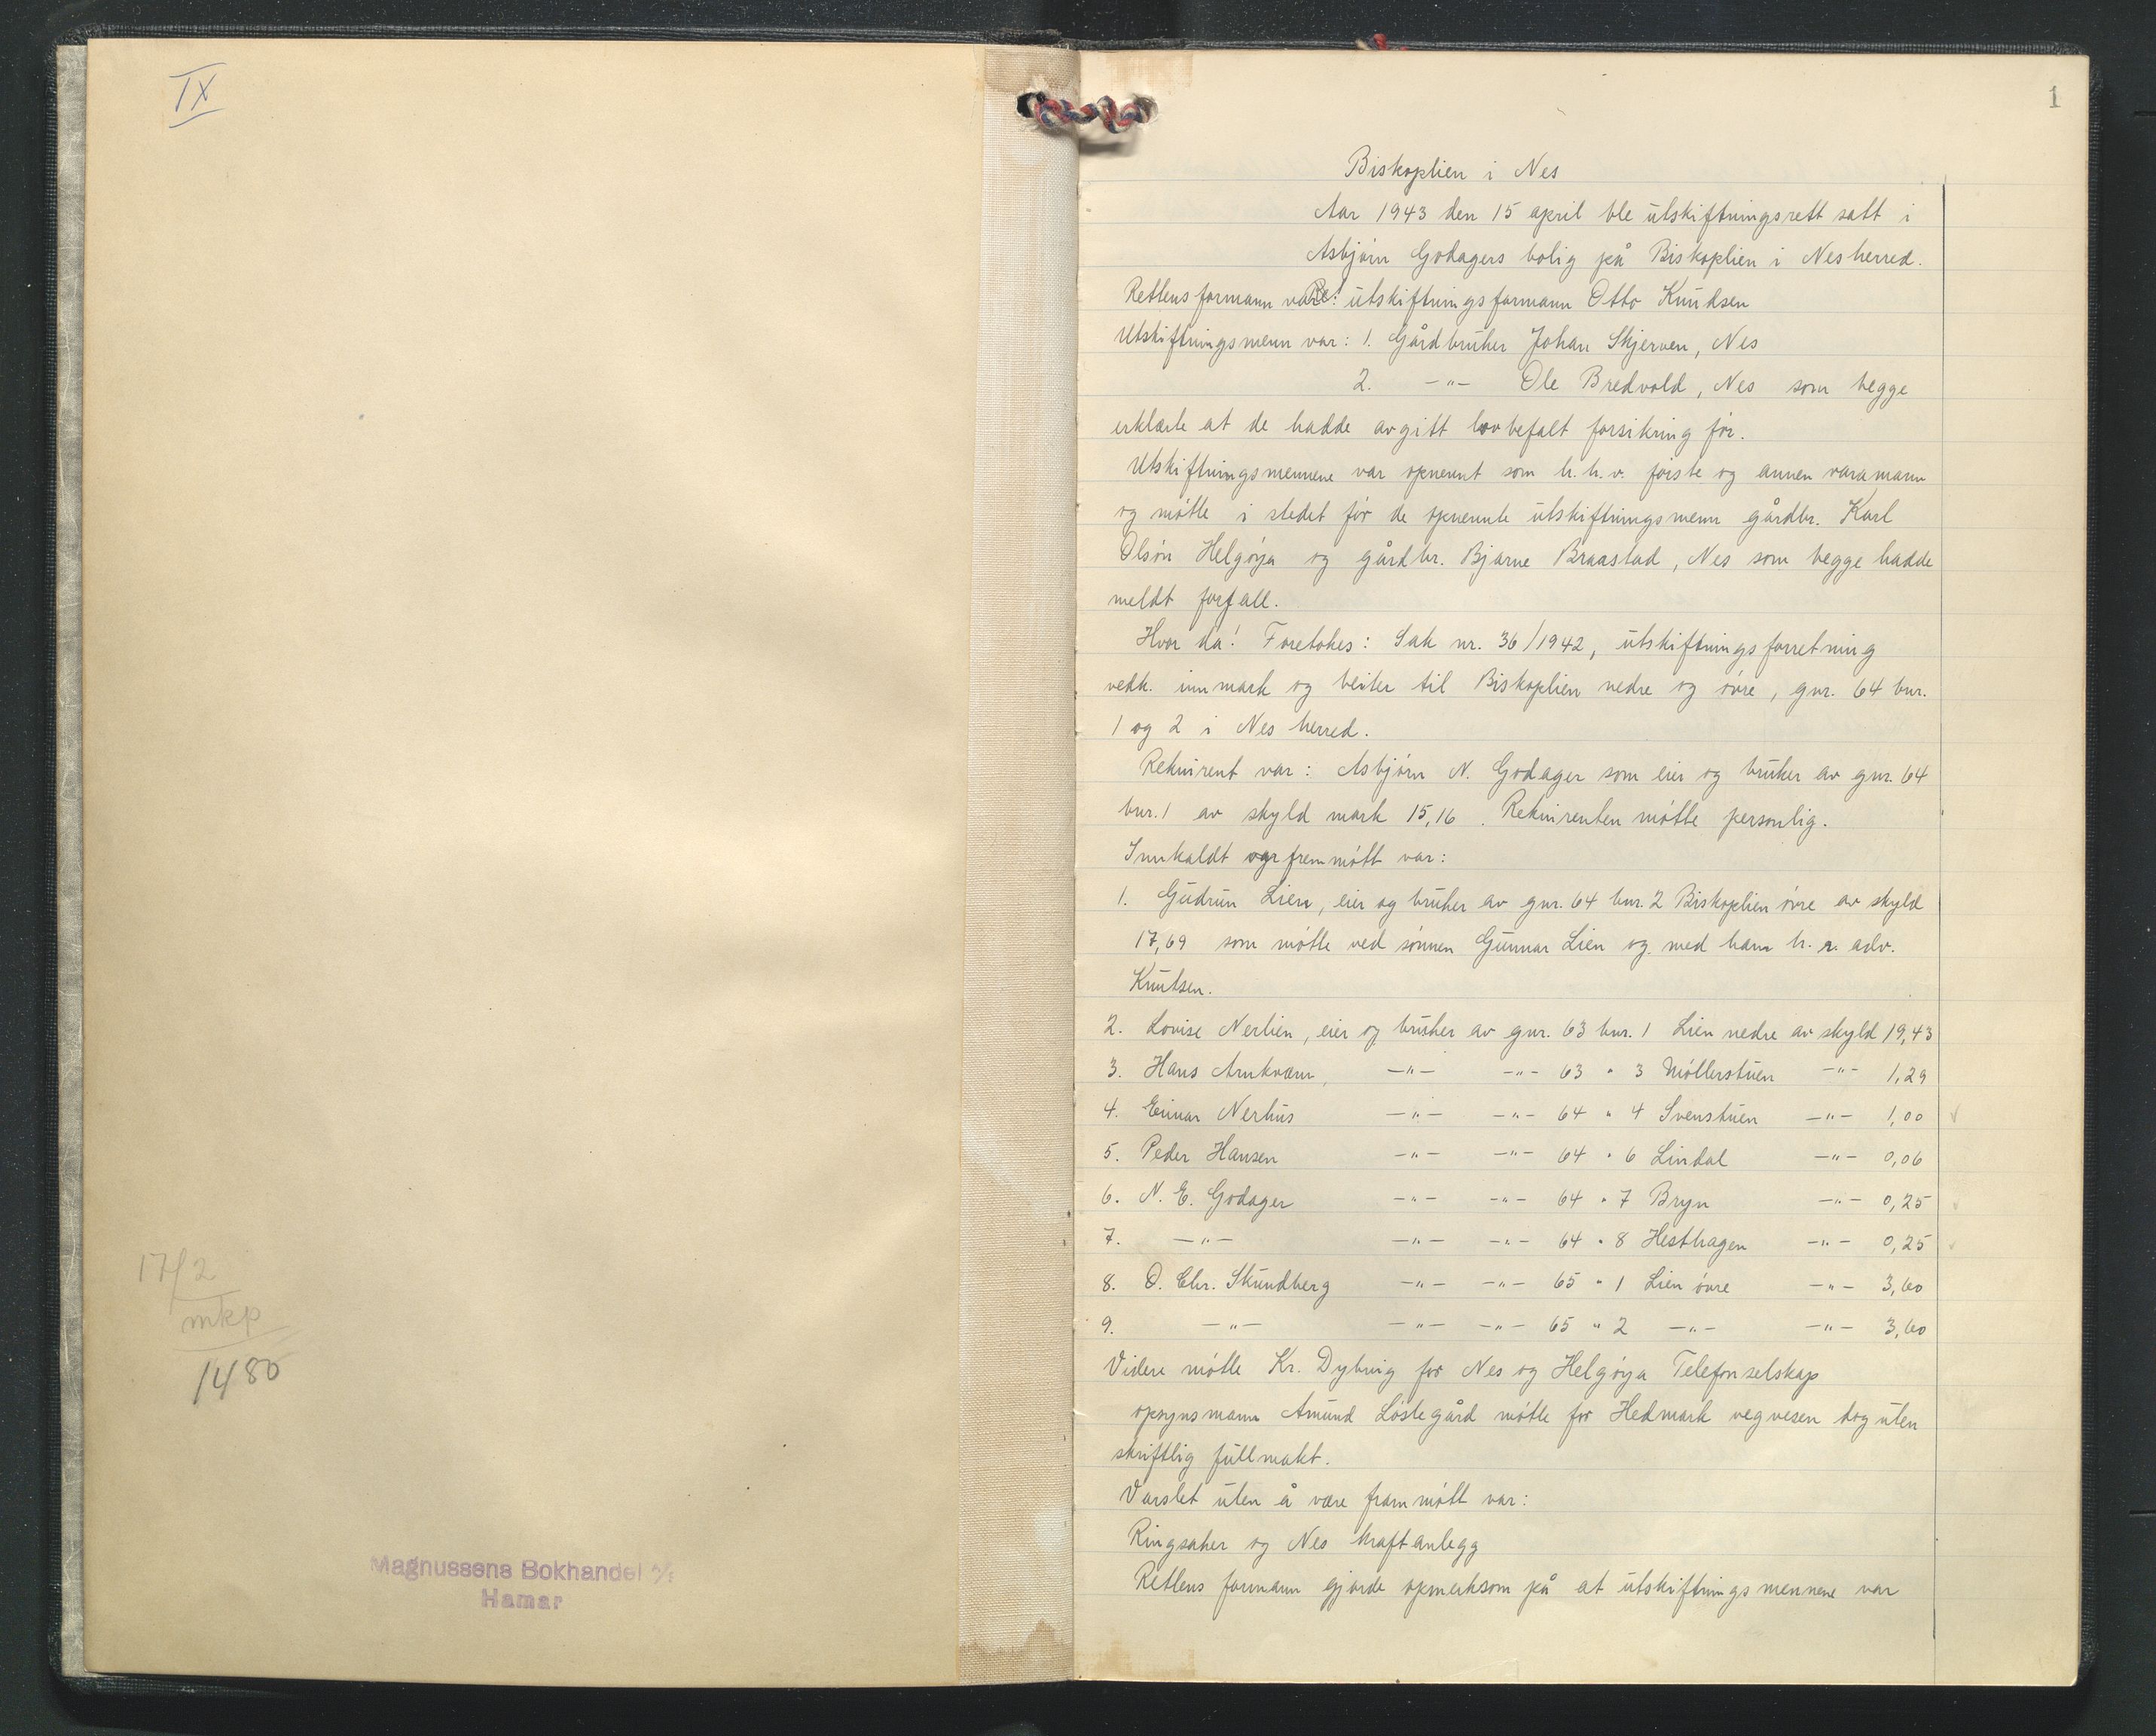 IX
17/2
mkp
1480
Magnussens Bokhandel A/S
Hamar
1
Biskoplien i Nes
Aar 1943 den 15 april ble utskiftningsrett satt i
Asbjørn Godagers bolig på Biskoplien i Nes herred.
Rettens formann var: utskiftningsformann Otto Knudsen
Utskiftningsmenn var: 1. Gårdbruker Johan Skjerven, Nes
2. -"- Ole Bredvold, Nes som begge
erklærte at de hadde avgitt lovbefalt forsikring før.
Utskiftningsmennene var opnevnt som h.h.v. første og annen varamann
og møtte i stedet for de opnevnte utskiftningsmenn gårdbr. Karl
Olsøn Helgøya og gårdbr. Bjarne Braastad, Nes som begge hadde
meldt forfall.
Hvor da! Foretokes: Sak nr. 36/1942, utskiftningsforretning
vedk. innmark og beiter til Biskoplien nedre og øvre, gnr. 64 bnr.
1 og 2 i Nes herred.
Rekvirent var: Asbjørn N. Godager som eier og bruker av gnr. 64
bnr. 1 av skyld mark 15,16. Rekvirenten møtte personlig.
Innkaldt og fremmøtt var:
1. Gudrun Lien, eier og bruker av gnr. 64 bnr. 2 Biskoplien øvre av skyld
17,69 som møtte ved sønnen Gunnar Lien og med ham h. r. adv.
Knutsen.
2. Lovise Nerlien, eier og bruker av gnr. 63 bnr. 1 Lien nedre av skyld 19,43
3. Hans Arnkværn, -"- -"- 63 " 3 Møllerstuen -"- 1,29
4. Einar Nerhus -"- -"- 64 " 4 Svenstuen -"- 1,00
5. Peder Hansen -"- -"- 64 " 6 Lindal -"- 0,06
6. N. E. Godager -"- -"- 64 " 7 Bryn -"- 0,25
7. -"- -"- -"- 64 " 8 Hesthagen -"- 0,25
8. O. Chr. Skundberg -"- -"- 65 " 1 Lien øvre -"- 3,60
9. -"- -"- -"- 65 " 2 -"- -"- 3,60
Videre møtte Kr. Dybvig for Nes og Helgøya Telefonselskap
opsynsmann Amund Løstegård møtte for Hedmark vegvesen dog uten
skriftlig fullmakt.
Varslet uten å være frammøtt var:
Ringsaker og Nes kraftanlegg
Rettens formann gjorde opmerksom på at utskiftningsmennene var